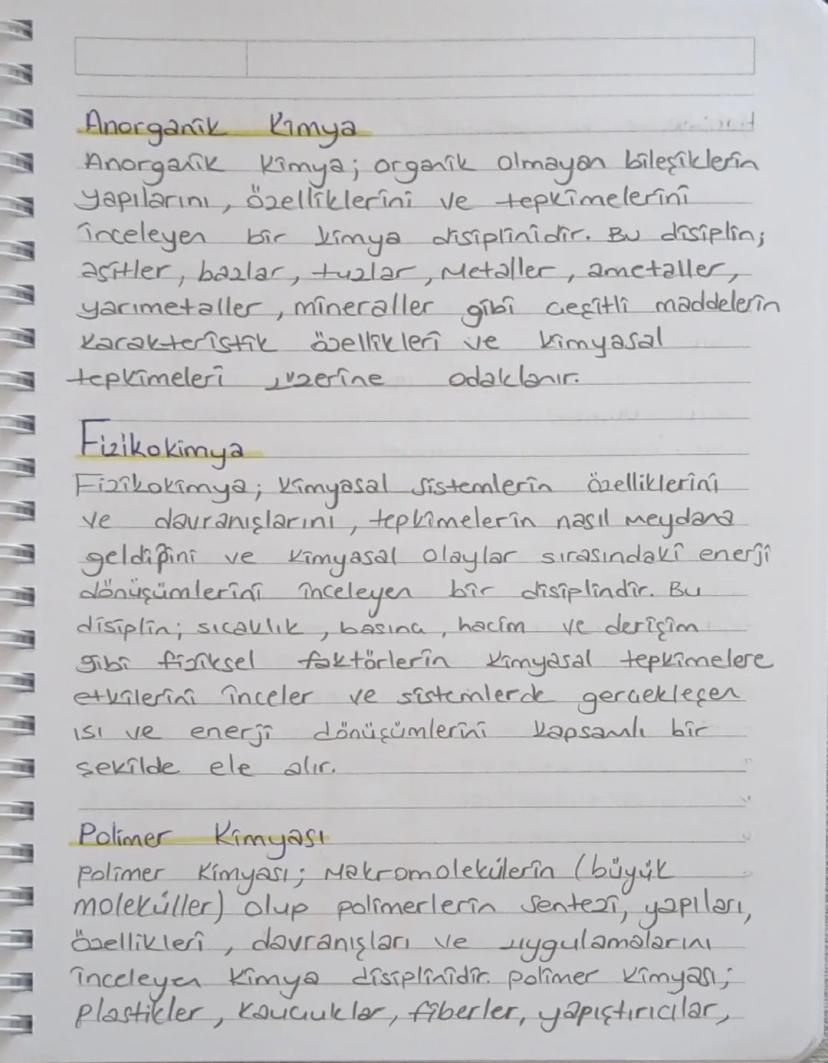 Anorganik Kimya
Anorganik Kimya; organik olmayan bileşiklerin
yapılarını, özelliklerini ve tepkimelerini
inceleyen bir kimya disiplinidir. Bu disiplin;
asitler, bazlar, tuzlar, Metaller, ametaller,
yarımetaller, mineraller gibi çeşitli maddelerin
karakteristik özellikleri ve kimyasal
tepkimeleri üzerine odaklanır.
Fizikokimya
Fizikokimya; kimyasal sistemlerin özelliklerini
ve davranışlarını, tepkimelerin nasıl meydana
geldiğini ve kimyasal olaylar sırasındaki enerji
dönüşümlerini inceleyen bir disiplindir. Bu
disiplin; sıcaklık, basınç, hacim ve derişim
gibi fiziksel faktörlerin kimyasal tepkimelere
etkilerini inceler ve sistemlerde gerçekleşen
ısı ve enerji dönüşümlerini kapsamlı bir
şekilde ele alır.
Polimer Kimyası
Polimer Kimyası; Makromolekülerin (büyük
moleküller) olup polimerlerin sentezi, yapıları,
özellikleri, davranışları ve uygulamalarını
inceleyen kimya disiplinidir. Polimer kimyası;
Plastikler, kauçuklar, fiberler, yapıştırıcılar,